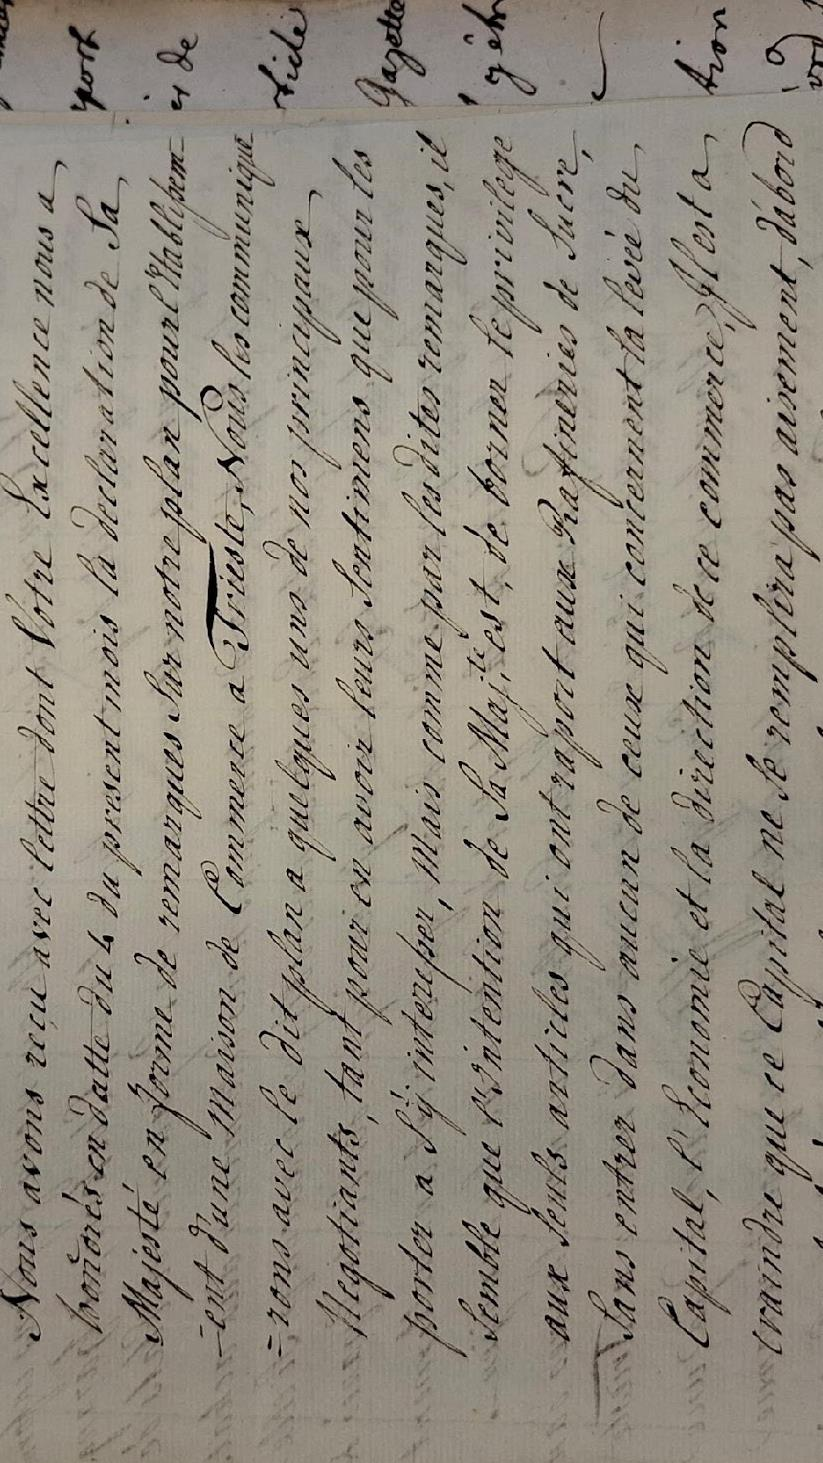 Nous avons reçu avec lettre dont Votre Excellence nous a
honorés en datte du 4 du present mois la declaration de Sa
Majesté en forme de remarques Sur notre plan pour l'Etablissem-
-ent d'une Maison de Commerce a Trieste, Nous les communique
=rons avec le dit plan a quelques uns de nos principaux
Negotiants, tant pour en avoir leurs Sentimens que pour les
porter a S'ÿ interesser, Mais comme par les dites remarques, il
Semble que l'Intention de Sa Maj.té est, de borner le privilege
aux Seuls articles qui ont raport aux Raffineries de Sucre,
Sans entrer dans aucun de ceux qui concernent la levée du
Capital, l'Economie et la direction de ce commerce, Il est a
craindre que ce Capital ne Se remplira pas aisement, d'abord
port
es de
rticle
Gazette
tion